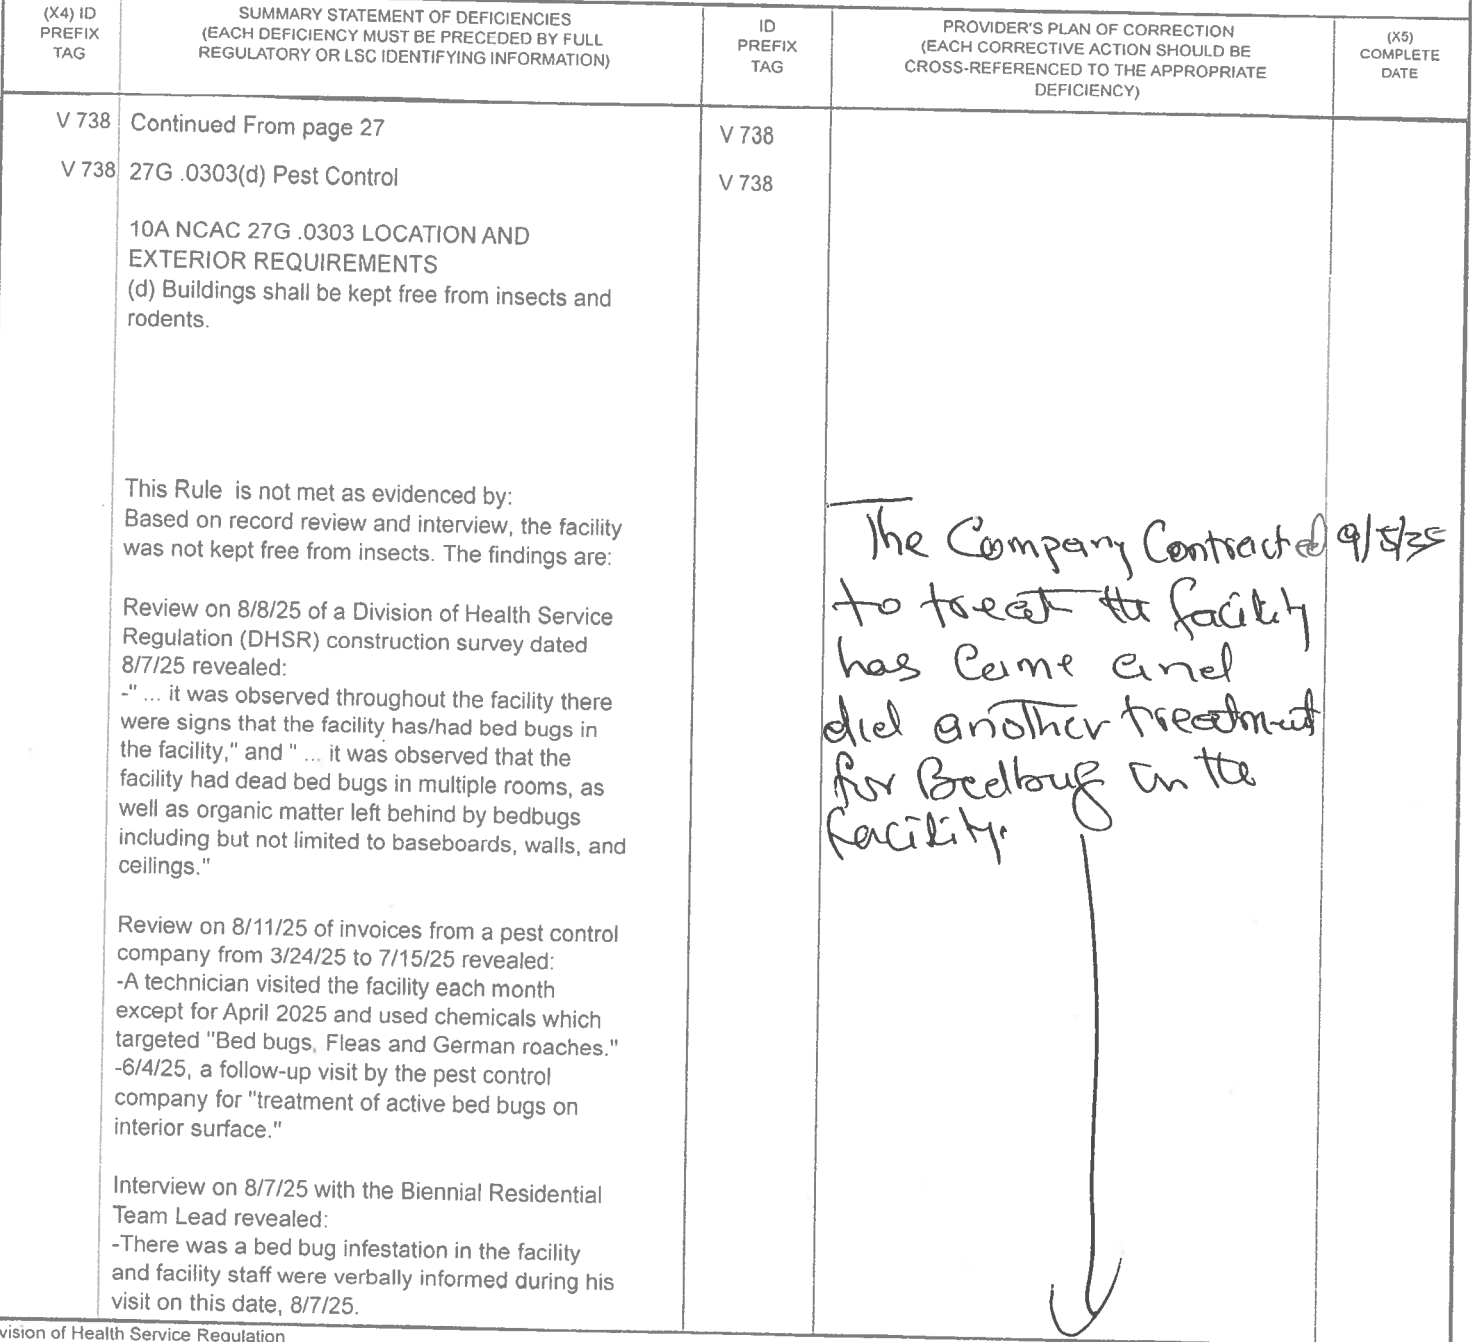 (X4) ID
PREFIX
TAG
SUMMARY STATEMENT OF DEFICIENCIES
(EACH DEFICIENCY MUST BE PRECEDED BY FULL
REGULATORY OR LSC IDENTIFYING INFORMATION)
ID
PREFIX
TAG
PROVIDER'S PLAN OF CORRECTION
(EACH CORRECTIVE ACTION SHOULD BE
CROSS-REFERENCED TO THE APPROPRIATE
DEFICIENCY)
(X5)
COMPLETE
DATE
V 738 Continued From page 27
V 738
V 738 27G .0303(d) Pest Control
V 738
10A NCAC 27G .0303 LOCATION AND
EXTERIOR REQUIREMENTS
(d) Buildings shall be kept free from insects and
rodents.
This Rule is not met as evidenced by:
Based on record review and interview, the facility
was not kept free from insects. The findings are:
Review on 8/8/25 of a Division of Health Service
Regulation (DHSR) construction survey dated
8/7/25 revealed:
-" ... it was observed throughout the facility there
were signs that the facility has/had bed bugs in
the facility," and " ... it was observed that the
facility had dead bed bugs in multiple rooms, as
well as organic matter left behind by bedbugs
including but not limited to baseboards, walls, and
ceilings."
Review on 8/11/25 of invoices from a pest control
company from 3/24/25 to 7/15/25 revealed:
-A technician visited the facility each month
except for April 2025 and used chemicals which
targeted "Bed bugs, Fleas and German roaches."
-6/4/25, a follow-up visit by the pest control
company for "treatment of active bed bugs on
interior surface."
Interview on 8/7/25 with the Biennial Residential
Team Lead revealed:
-There was a bed bug infestation in the facility
and facility staff were verbally informed during his
visit on this date, 8/7/25.
The Company Contracted 9/5/25
to treat the facility
has Came and
did another treatment
for Bedbug in the
facility.
vision of Health Service Regulation